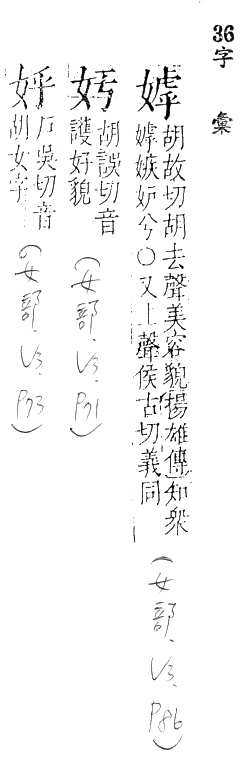 36字 彙
嫭 胡故切胡去聲美容貌揚雄傳知眾
嫭嫉妒兮○又上聲侯古切義同
(女部.V3.P86)
㚥 胡誤切音
護好貌
(女部.V3.P71)
㚰 ⺁吳切音
胡女字
(女部.V3.P73)